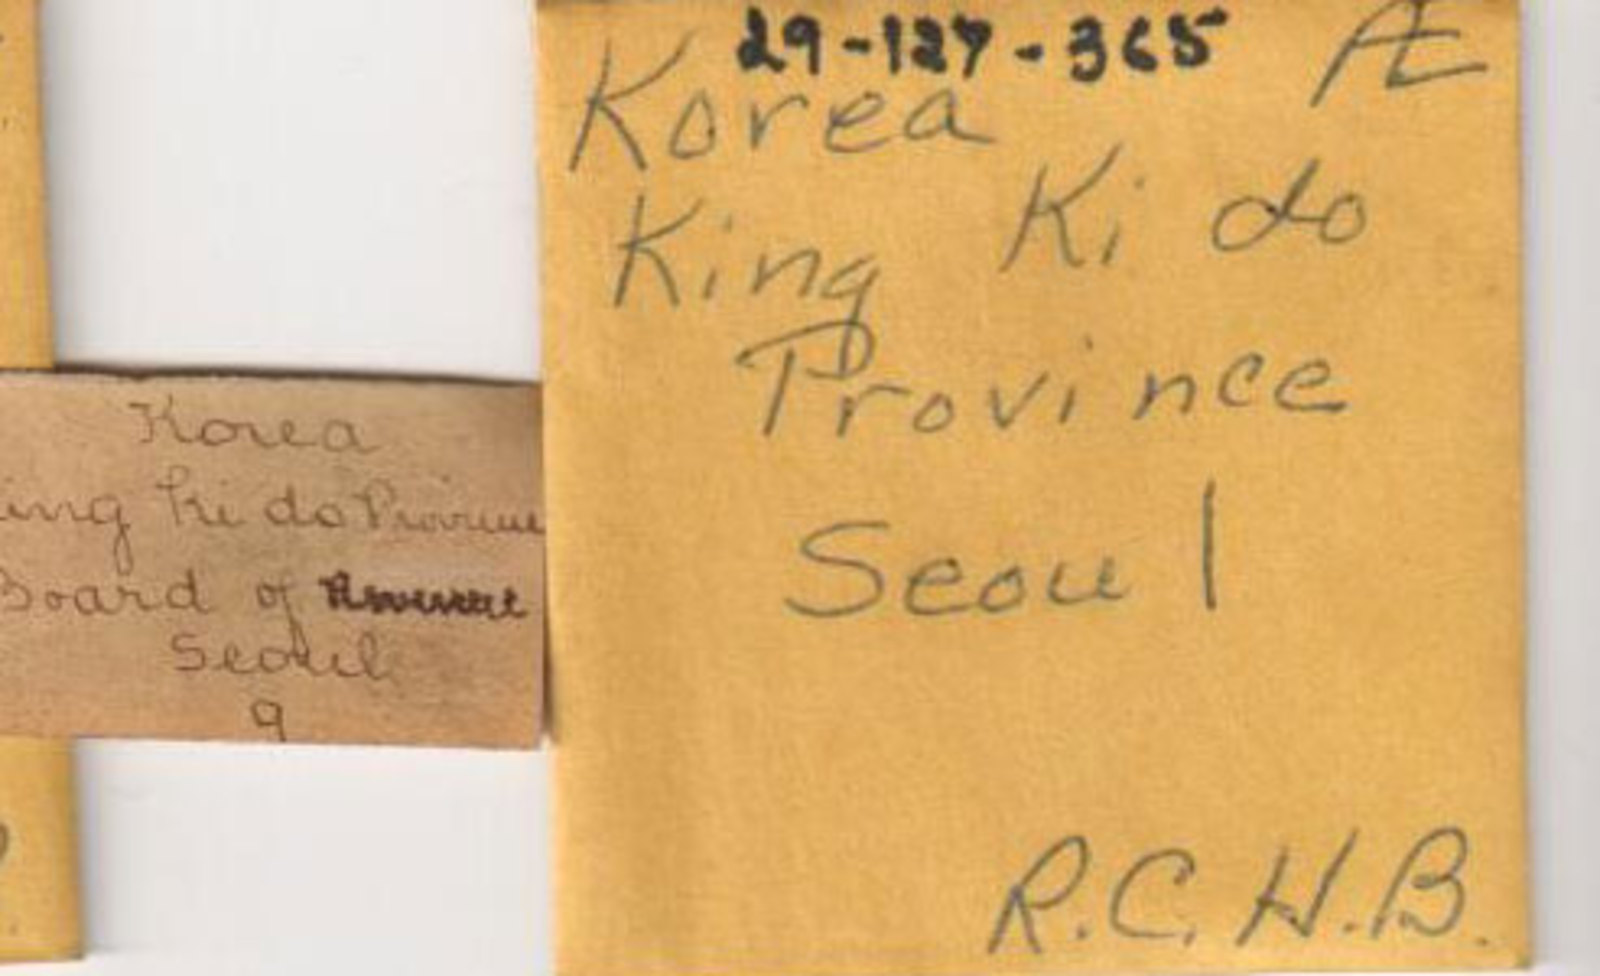 Korea
ing Ki do Province
Board of Revenue
Seoul
9
29-127-365 Æ
Korea
King Ki do
Province
Seoul
R.C.H.B.